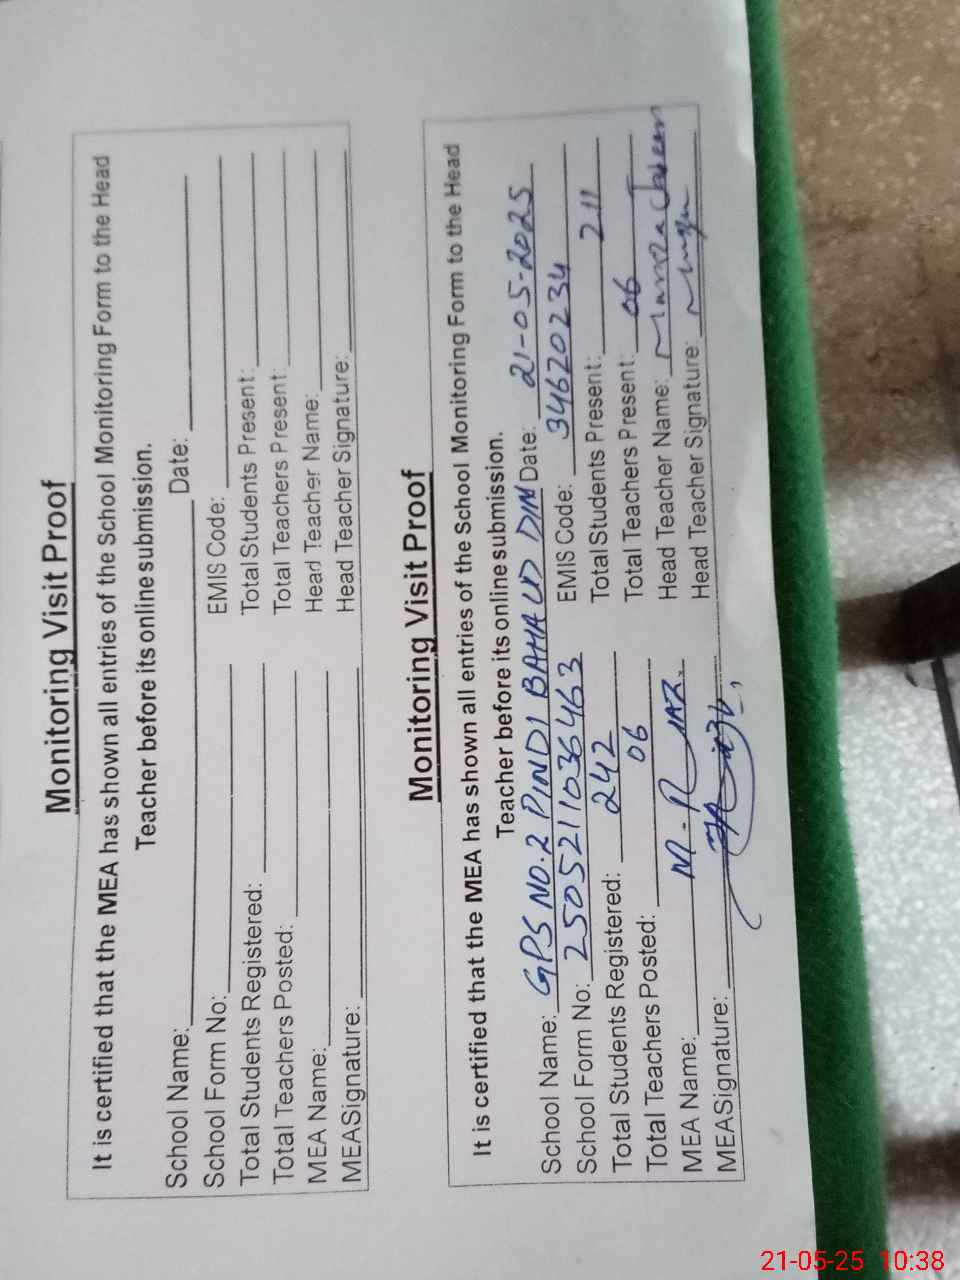 Monitoring Visit Proof
It is certified that the MEA has shown all entries of the School Monitoring Form to the Head
Teacher before its online submission.
School Name: Date:
School Form No: EMIS Code:
Total Students Registered: Total Students Present:
Total Teachers Posted: Total Teachers Present:
MEA Name: Head Teacher Name:
MEA Signature: Head Teacher Signature:
Monitoring Visit Proof
It is certified that the MEA has shown all entries of the School Monitoring Form to the Head
Teacher before its online submission.
School Name: GPS NO.2 PINDI BAHA UD DIN Date: 21-05-2025
School Form No: 2505211036463 EMIS Code: 34620234
Total Students Registered: 242 Total Students Present: 211
Total Teachers Posted: 06 Total Teachers Present: 06
MEA Name: M.R Head Teacher Name:
MEA Signature: Head Teacher Signature:
21-05-25 10:38